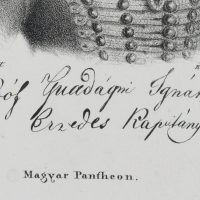 Guadágni Ignác
Ezredes Kapitány
Magyar Pantheon.